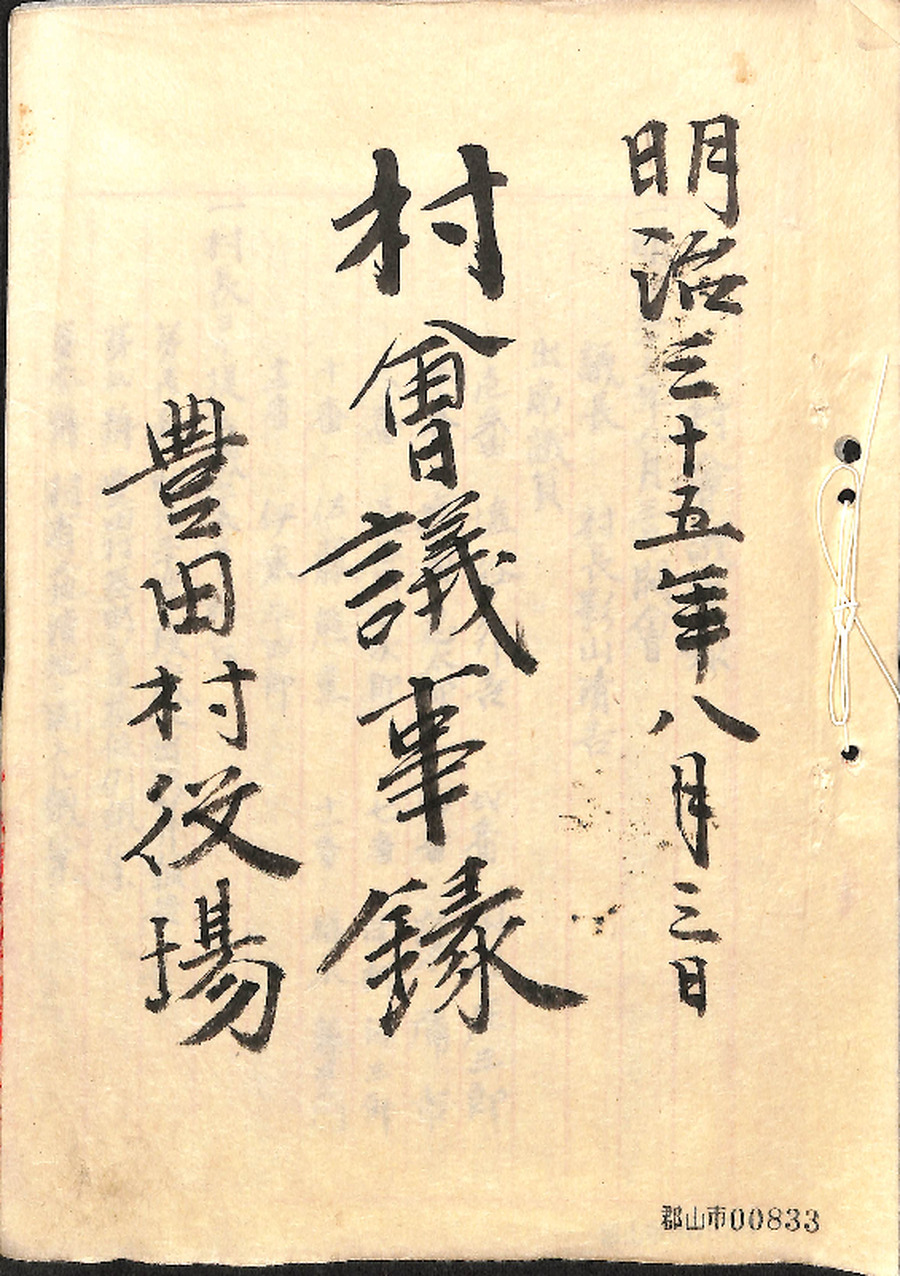 明治三十五年八月三日
村會議事録
豊田村役場
郡山市00833